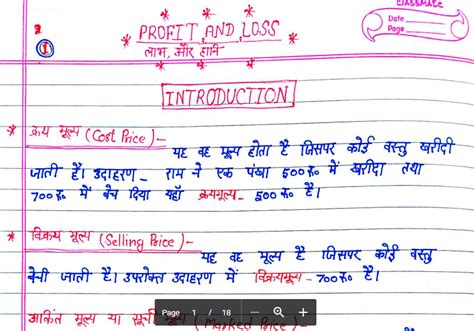 CLASSMATE
Date
Page
1
PROFIT AND LOSS
लाभ और हानि
INTRODUCTION
* क्रय मूल्य (Cost Price) -
यह वह मूल्य होता है जिसपर कोई वस्तु खरीदी
जाती है। उदाहरण - राम ने एक पंखा 500 रु० में खरीदा तथा
700 रु० में बेच दिया यहाँ क्रयमूल्य - 500 रु० है।
* विक्रय मूल्य (Selling Price) -
यह वह मूल्य है जिसपर कोई वस्तु
बेची जाती है। उपरोक्त उदाहरण में विक्रयमूल्य - 700 रु० है।
अंकित मूल्य या सूची मूल्य (Marked Price)
Page 1 / 18